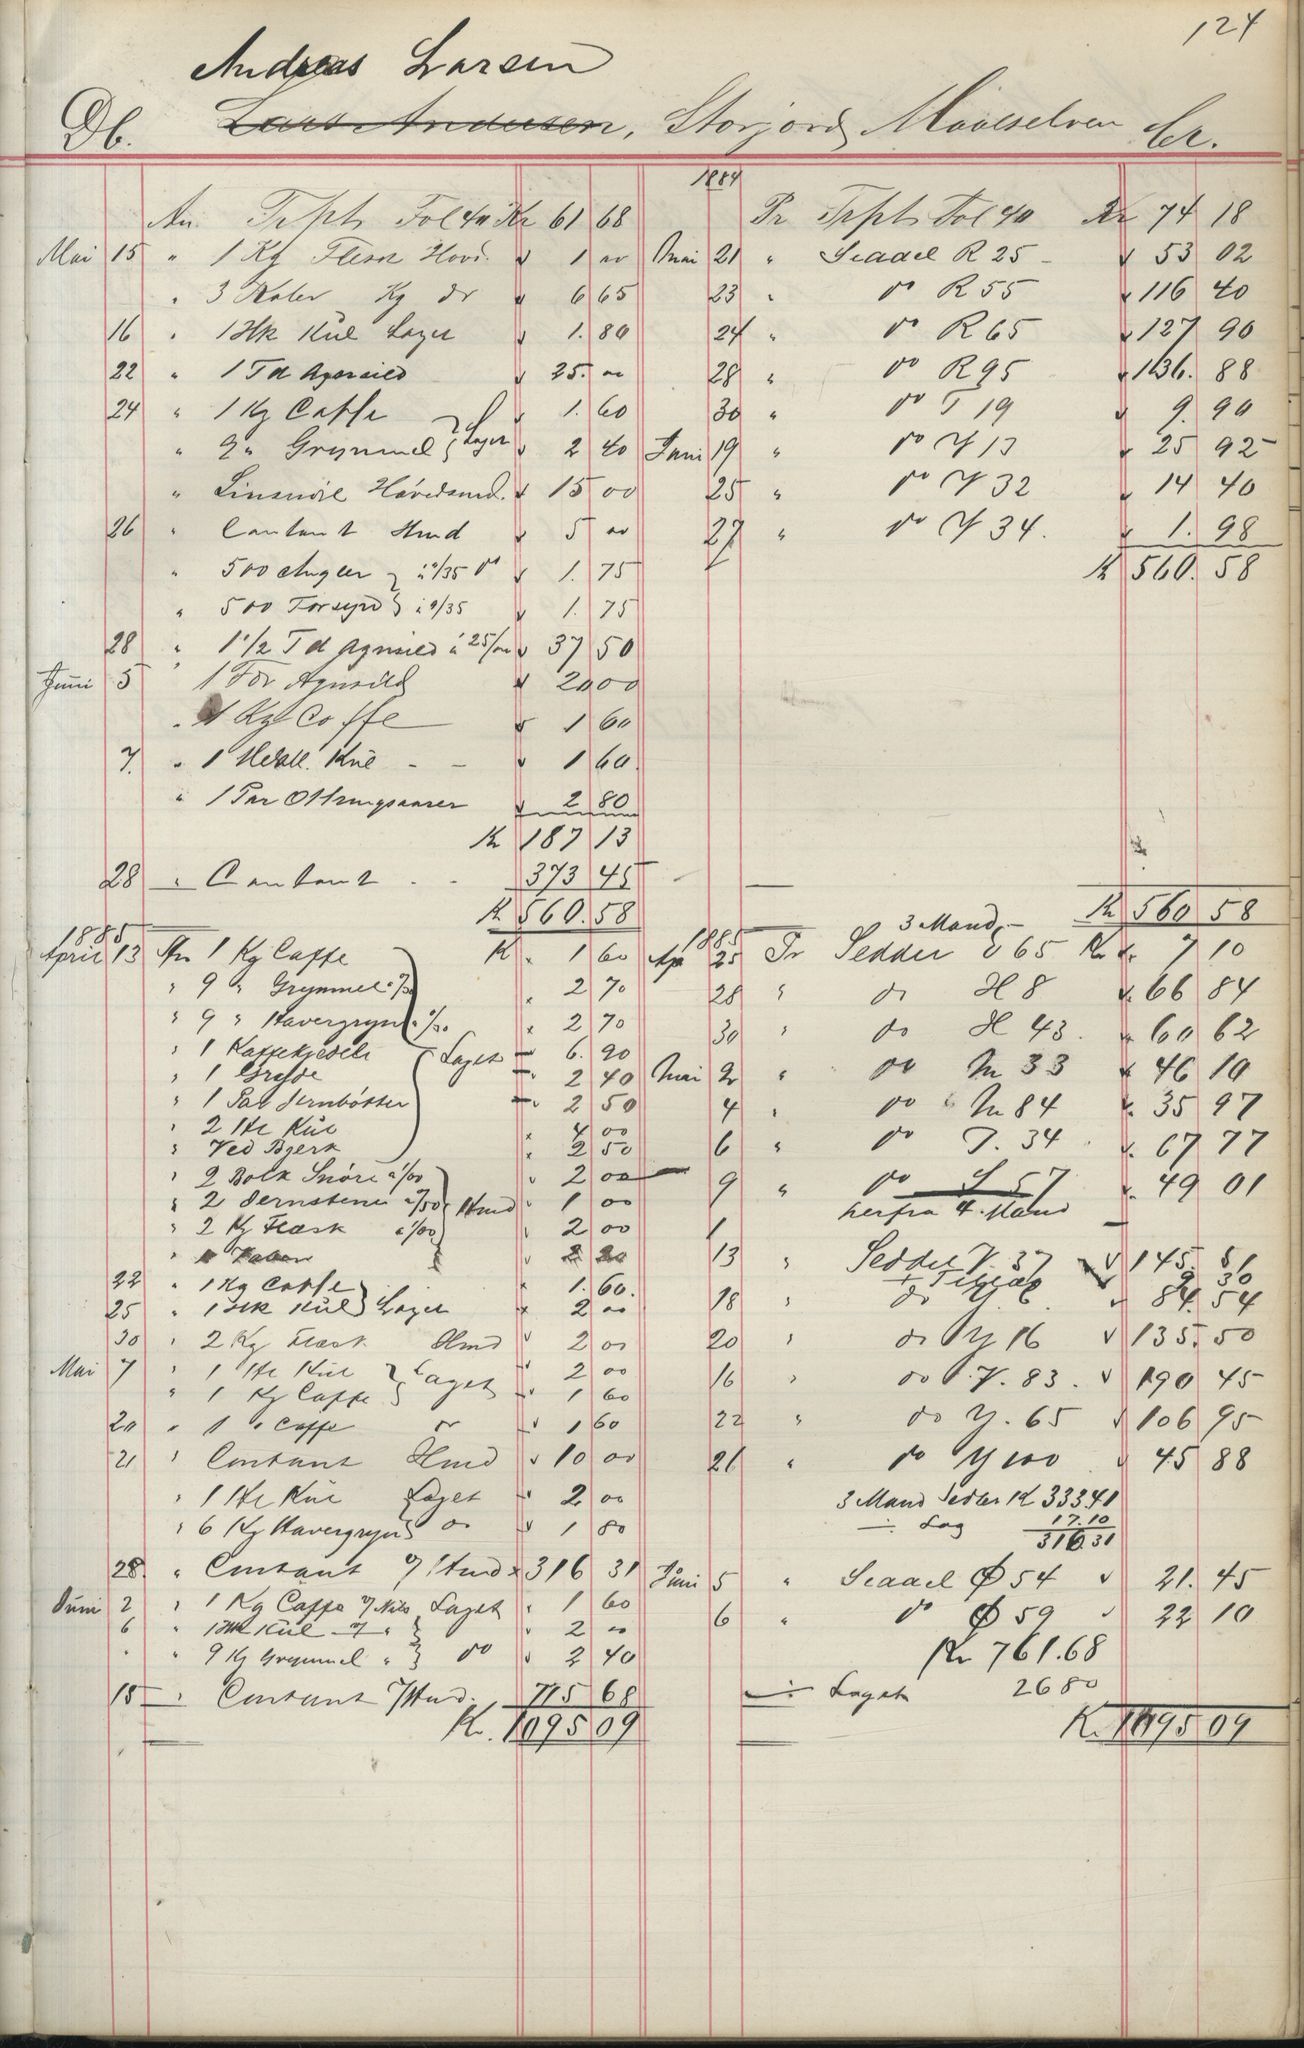 124
Andreas Larsen
Db. Lars Andersen, Storjord, Maalselven Cr.
An Trpt Fol 40 Kr 61 68
Mai 15 " 1 Kg Flesk Hovd. 1 00
" 3 Kg do 6 65
16 " 1 Hk Kul Laget 1. 80
22 " 1 Td Agnsild 25. 00
24 " 1 Kg Caffe 1. 60
" Grynmel } Laget 2 40
" Linsnöre Hovedsmd. 15 00
26 " Contant Hmd 5 00
" 500 Angler } à /35 do 1. 75
" 500 Forsynd } à /35 1. 75
28 " 1 1/2 Td Agnsild à 25/00 37 50
Juni 5 " 1 Tdr Agnsild 20 00
" 1 Kg Coffe 1 60
7. " 1 Kul - - 1 60
" 1 Par Ottringsaarer 2 80
Kr 187 13
28 " Contant - - 373 45
Kr 560. 58
1885
April 13 An 1 Kg Caffe K 1 60
" 9 " Grynmel /30 2 70
" 9 " Havergryn /30 2 70
" 1 Kaffekjedel } Laget 6. 90
" 1 Gryde 2 40
" 1 Par Jernbötter 2 50
" 2 Hl Kul 4 00
" Ved Bjerk 2 50
" 2 Bolk Snöre à 1/00 2 00
" 2 Jernstene à /50 } Hmd 1 00
" 2 Kg Flæsk à 1/00 2 00
22 " 1 Kg Caffe 1. 60.
25 " 1 Hk Kul } Laget 2 00
30 " 2 Kg Flæsk Hmd 2 00
Mai 7 " 1 Hl Kul } Laget 2 00
" 1 Kg Caffe 1 60
20 " 1 " Caffe do 1 60
21 " Contant Hmd 10 00
" 1 Hl Kul Laget 2 00
" 6 Kg Havergryn do 1 80
28. " Contant Hmd 316 31
Juni 2 " 1 Kg Caffe Laget 1 60
6 " 1 Hk Kul 2 00
" " 9 Kg Grynmel " } do 2 40
15 " Contant Hmd. 715 68
Kr. 1095 09
1884
Pr Trpt Fol 40 Kr 74 18
Mai 21 " Seddel R 25 - 53 02
23 " do R 55 116 40
24 " do R 65 127 90
28 " do R 95 136. 88
30 " do T 19 9. 90
Juni 19 " do Y 13 25 92
25 " do Y 32 14 40
27 " do Y 34. 1. 98
Kr 560. 58
Kr 560 58
1885 3 Mand
Ap 25 Pr Sedder 65 Kr 7 10
28 " do H 8 66 84
30 " do H 43. 60 62
Mai 2 " do M 33 46 10
4 " do M 84 35 97
6 " do T. 34 67 77
9 " do S 57 49 01
herfra 4. Mand
13 " Seddel V. 37 145. 81
9 30
18 " do Y. 6. 84. 54
20 " do Y 16 135. 50
16 " do V. 83. 190 45
22 " do Y. 65 106 95
21 " do Y 100 45 88
3 Mand Sedler K 333.41
÷ Lag 17.10
316.31
Juni 5 " Seddel Ø 54 21. 45
6 " do Ø 59 22 10
Kr 761.68
÷ Laget 26 80
K. 1095 09